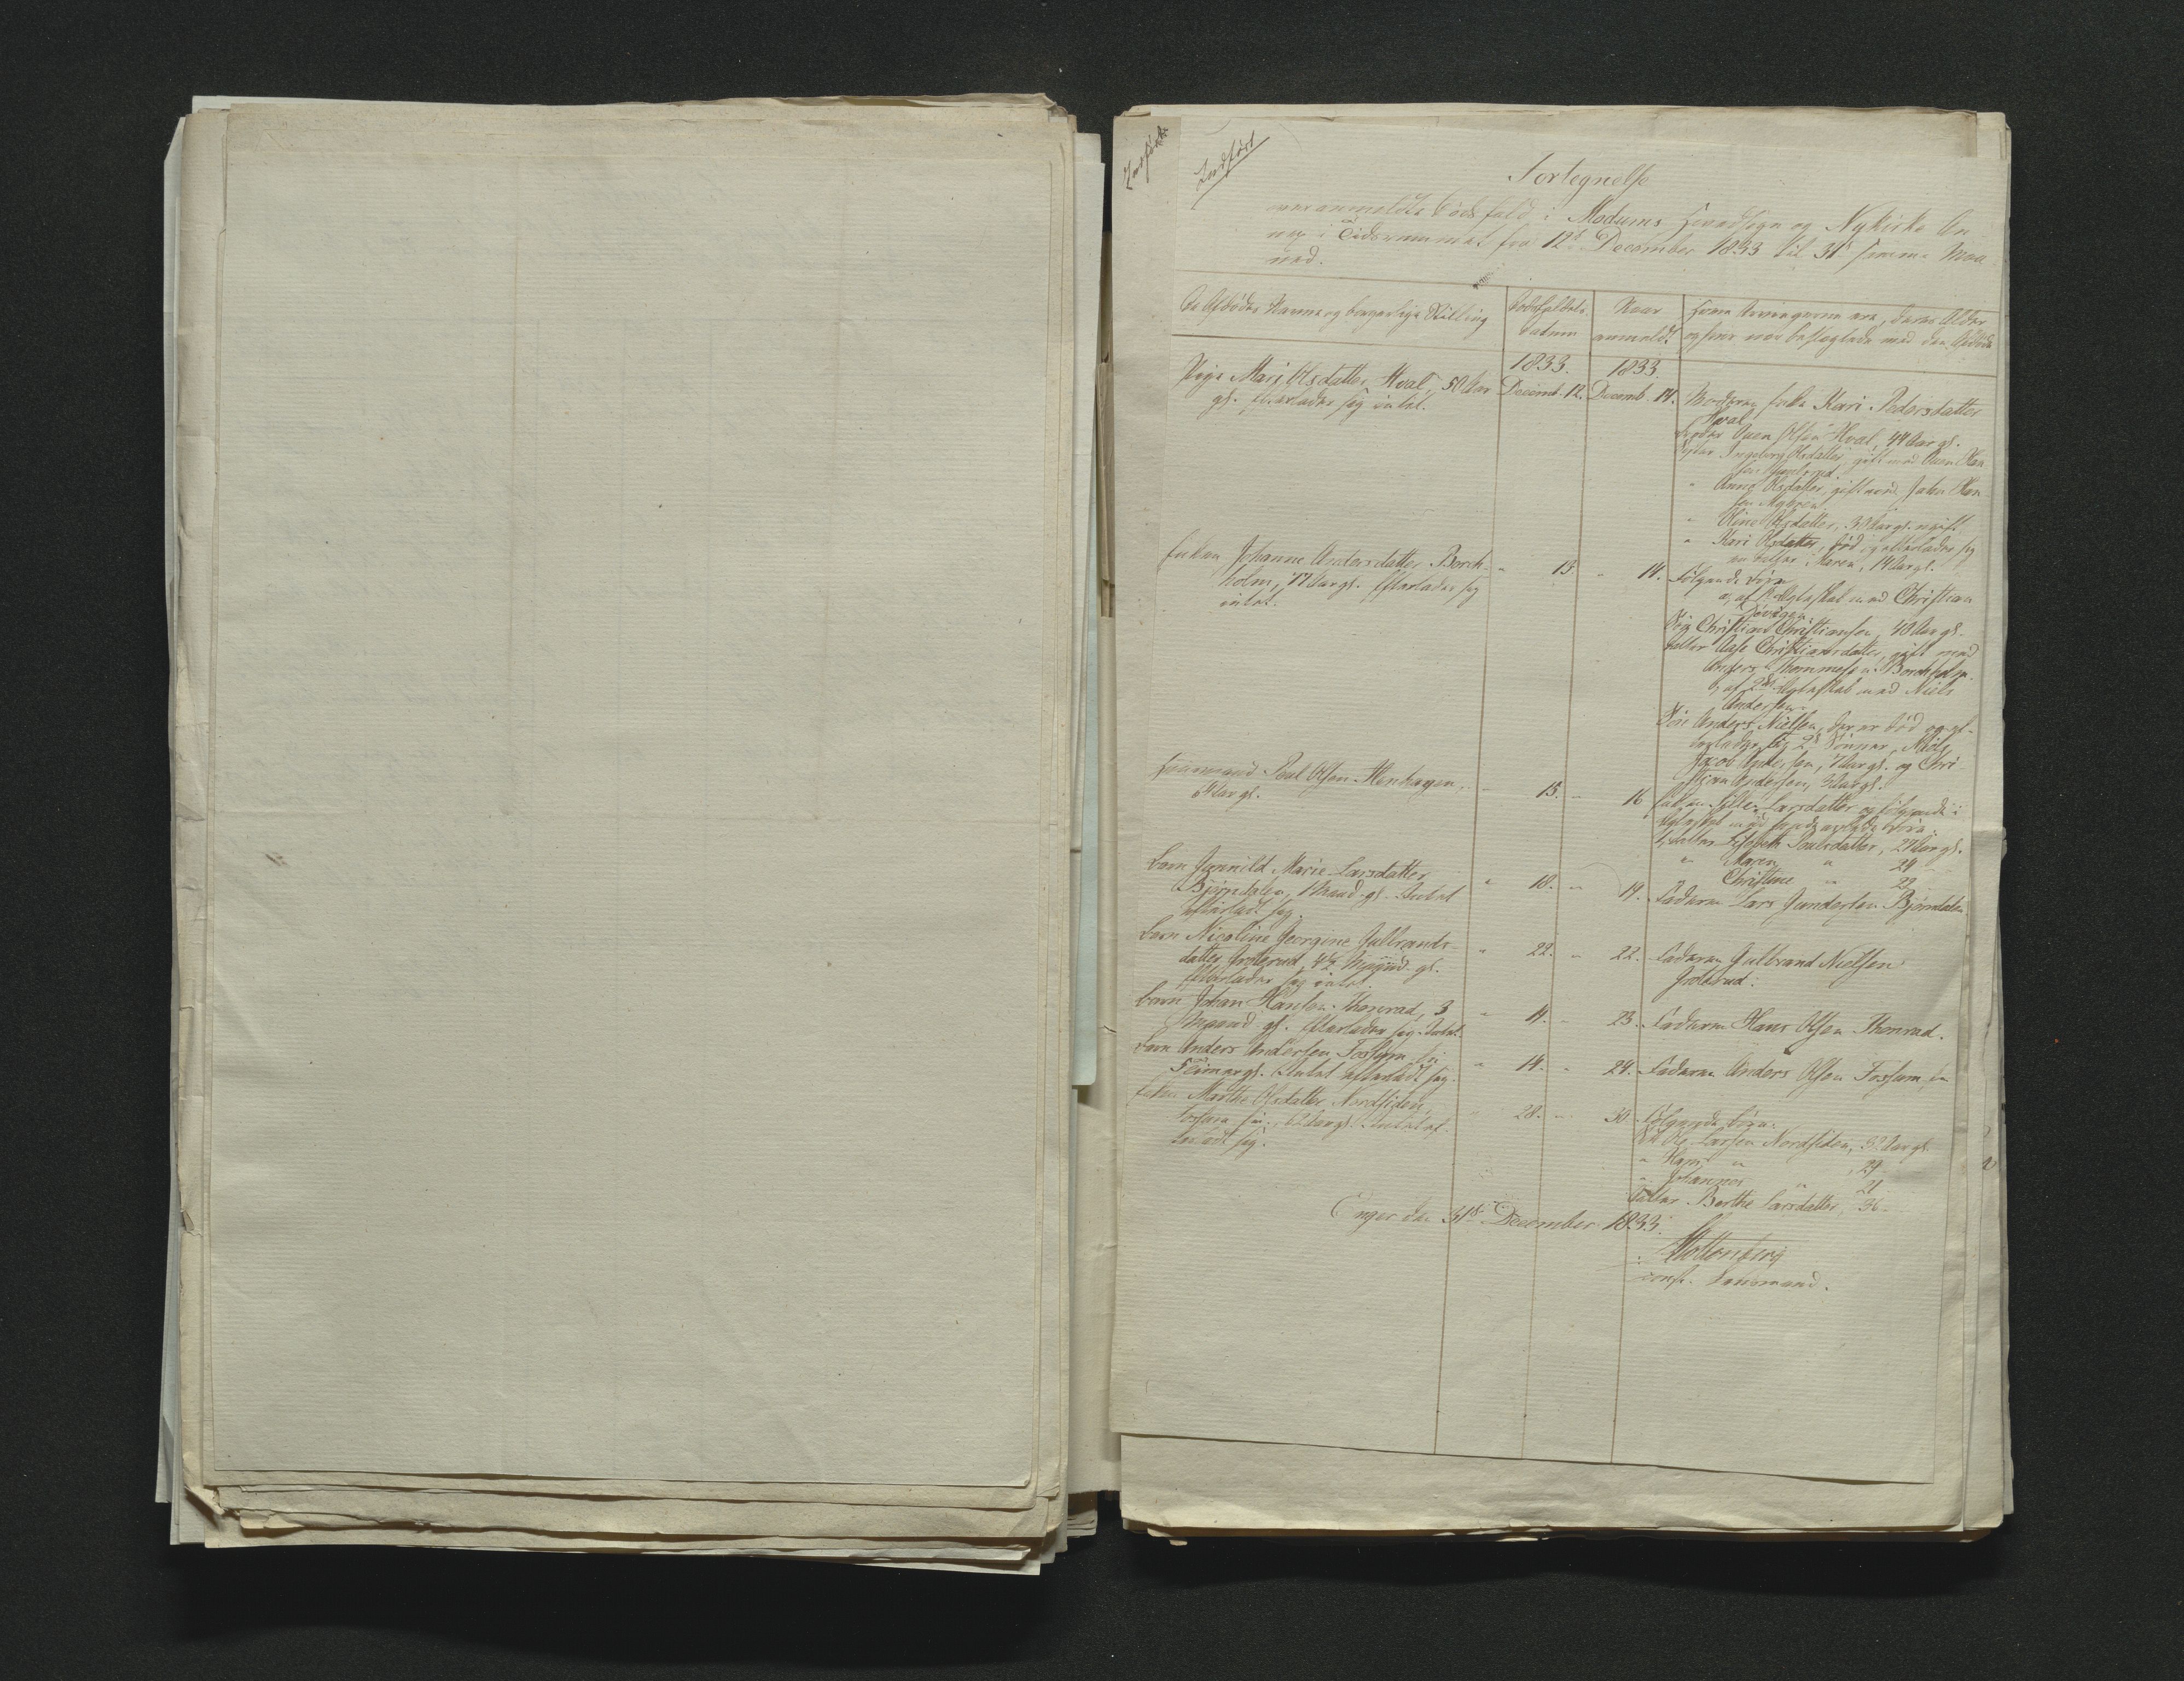 Indført
Indført
Fortegnelse
over anmeldte Dødsfald i Modums Hovedsogn og Nykirke An-
nex i Tidsrummet fra 12te December 1833 til 31te samme Maa-
ned.
De Afdødes Navne og borgerlige Stilling
Dødsfaldets Datum
Naar anmeldt
Hvem Arvingerne ere, deres Alder
og hvor nær beslægtede med den Afdøde
1833. 1833.
Pige Mari Olsdatter Hval, 50 Aar
gl. Efterlader sig intet.
Decemb. 12. Decemb. 14.
Moderen Enke Kari Pedersdatter
Hval
Broder Ouen Olsen Hval, 44 Aar gl.
Søster Ingeborg Olsdatter, gift med Ouen Han-
sen
" Anne Olsdatter, gift med John Han-
sen
" Oline Olsdatter, 30 Aar gl. ugift
" Kari Olsdatter, død og efterlader sig
en Datter Maren, 14 Aar gl.
Enken Johanne Andersdatter Borch-
holm, 77 Aar gl. Efterlader sig
intet.
" 13. " 14.
Følgende Børn
a, af Ægteskab med Christian
Søn Christian Christiansen 40 Aar gl.
Datter Aase Christiansdatter, gift med
Anders Thommesen Borchholm.
b, af 2det Ægteskab med Niels
Andersen
Søn Anders Nielsen, der er død og ef-
terlader sig 2de Sønner, Niels
Jacob Andersen, 7 Aar gl. og Chri-
stian Andersen, 3 Aar gl.
Huusmand Poul Olsen Stenhagen,
64 Aar gl.
" 15. " 16
Enken Larsdatter og følgende i
Ægteskab med hende avlede Børn:
1, Datter Lisebeth Poulsdatter, 27 Aar gl.
" Maren " 24
" Christine " 22
Barn Gunnild Marie Larsdatter
Bjørndalen, 1 Maaned gl. Intet
efterladt sig.
" 18. " 19.
Faderen Lars Gundersen Bjørndalen
Barn Nicoline Georgine Gulbrands-
datter Grøterud, 4½ Maaned gl.
Efterlader sig intet.
" 22. " 22.
Faderen Gulbrand Nielsen
Grøterud.
Barn Johan Hansen Thonrad, 3
Maaned gl. Efterlader sig Intet.
" 14. " 23.
Faderen Hans Olsen Thonrad.
Barn Anders Andersen Fossum Eie
Timer gl. Intet efterladt sig.
" 14. " 24.
Faderen Anders Olsen Fossum Eie
Enken Marthe Olsdatter Nordsiden,
Fossum Eie, 62 Aar gl. Intet ef-
terladt sig.
" 28. " 30.
Følgende Børn:
Søn Ole Larsen Nordsiden, 32 Aar gl.
" Hans " 29
" Johannes " 21
Datter Berthe Larsdatter, 36
Enger den 31te December 1833.
Stoltenberg
const. Lensmand.